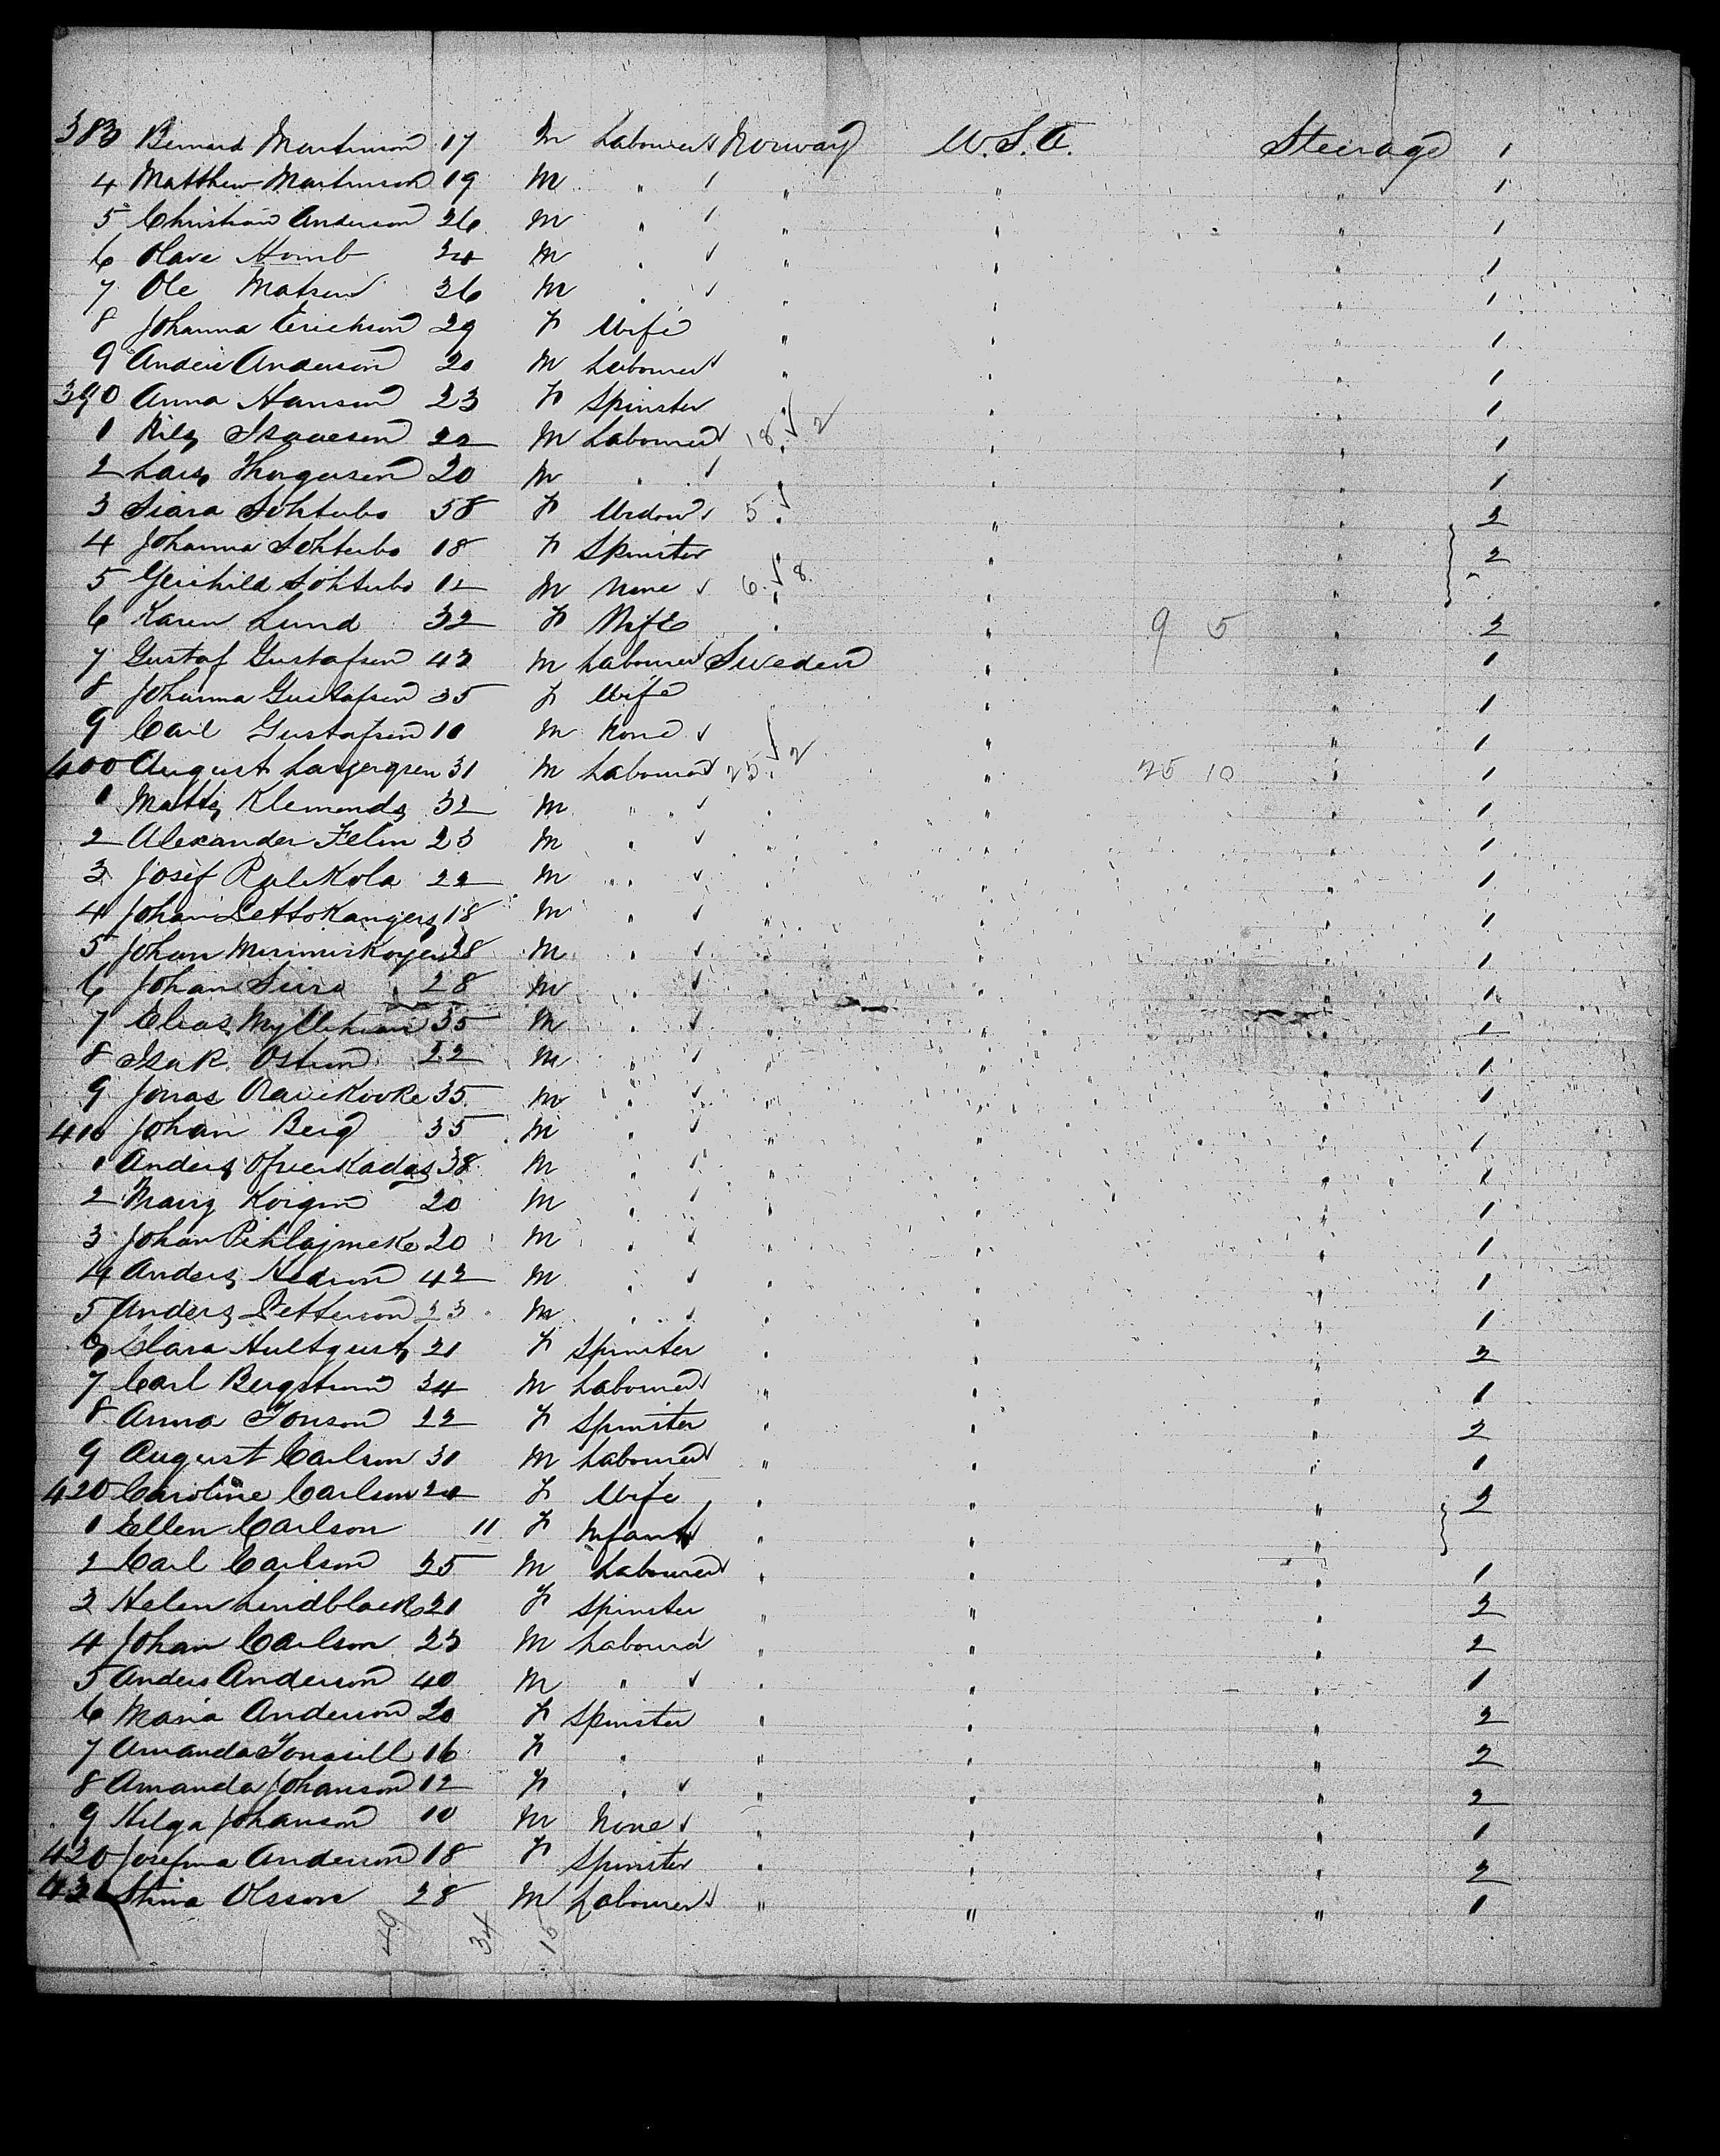 383 Bernard Martinson 17 M Labourer Norway U.S.A. Steerage 1
4 Matthew Martinson 19 M " " " " 1
5 Christian Anderson 26 M " " " " 1
6 Olave 24 M " " " " 1
7 Ole Matsen 26 M " " " " 1
8 Johanna Erickson 29 F Wife " " " 1
9 Anderson 20 M Labourer " " " 1
390 Anna Hanson 23 F Spinster " " " 1
1 Nils Isaacson 22 M Labourer 18 2 " " " 1
2 Lars Thorgersen 20 M " " " 1
3 58 F Widow 5 " " " 2
4 Johanna 18 F Spinster " " " 2
5 12 M None 6 8 " " "
6 Karen Lund 32 F Wife " " 9 5 " 2
7 Gustaf Gustafson 42 M Labourer Sweden " " 1
8 Johanna Gustafson 35 F Wife " " 1
9 Carl Gustafson 10 M None " " 1
400 August 31 M Labourer 25 2 " 25 10 " 1
1 Matts Klemends 32 M " " " " 1
2 Alexander 23 M " " " " 1
3 Josef 22 M " " " " 1
4 Johan 18 M " " " " 1
5 Johan 28 M " " " " 1
6 Johan 28 M " " " " 1
7 Elias 35 M " " " " 1
8 Isak 22 M " " " " 1
9 Jonas 35 M " " " " 1
410 Johan Berg 35 M " " " " 1
1 Anders 38 M " " " " 1
2 20 M " " " " 1
3 Johan Pihlajmeke 20 M " " " " 1
4 Anders 42 M " " " " 1
5 Anders Petterson 23 M " " " " 1
6 Clara Hultquist 21 F Spinster " " " 2
7 Carl Bergstrom 34 M Labourer " " " 1
8 Anna 22 F Spinster " " " 2
9 August Carlson 31 M Labourer " " " 1
420 Caroline Carlson 24 F Wife " " " 2
1 Ellen Carlson 11 F Infant " " "
2 Carl Carlson 25 M Labourer " " " 1
3 Helen 21 F Spinster " " " 2
4 Johan Carlson 23 M Labourer " " " 2
5 Anders Anderson 40 M " " " " 1
6 Maria Anderson 20 F Spinster " " " 2
7 Amanda 16 F " " " " 2
8 Amanda Johanson 12 F " " " " 2
9 Helga Johanson 10 M None " " " 1
430 Josefina Anderson 18 F Spinster " " " 2
431 Stina Olsson 28 M Labourer " " " 1
49 34 15